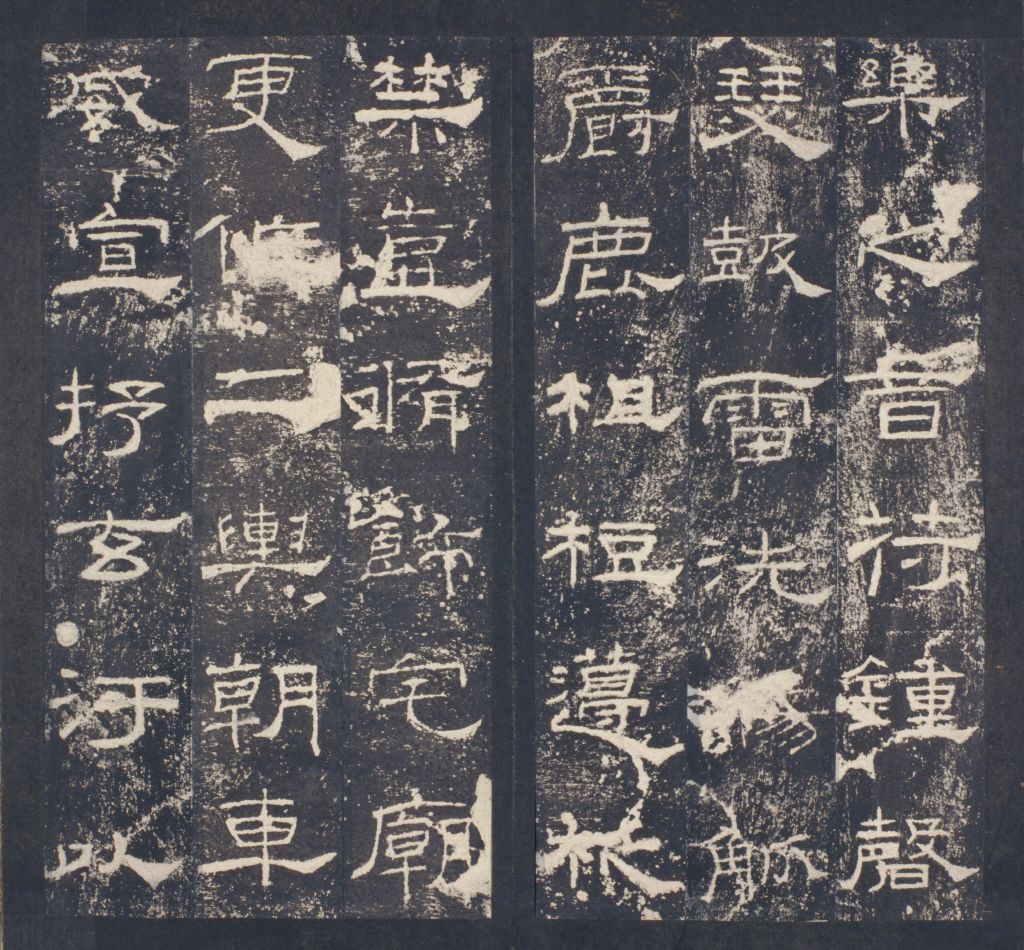 樂之音苻鍾磬
瑟鼓雷洗觴觚
爵鹿柤梪籩柉
禁壺脩飾宅廟
更作二輿朝車
威宣抒玄汙以